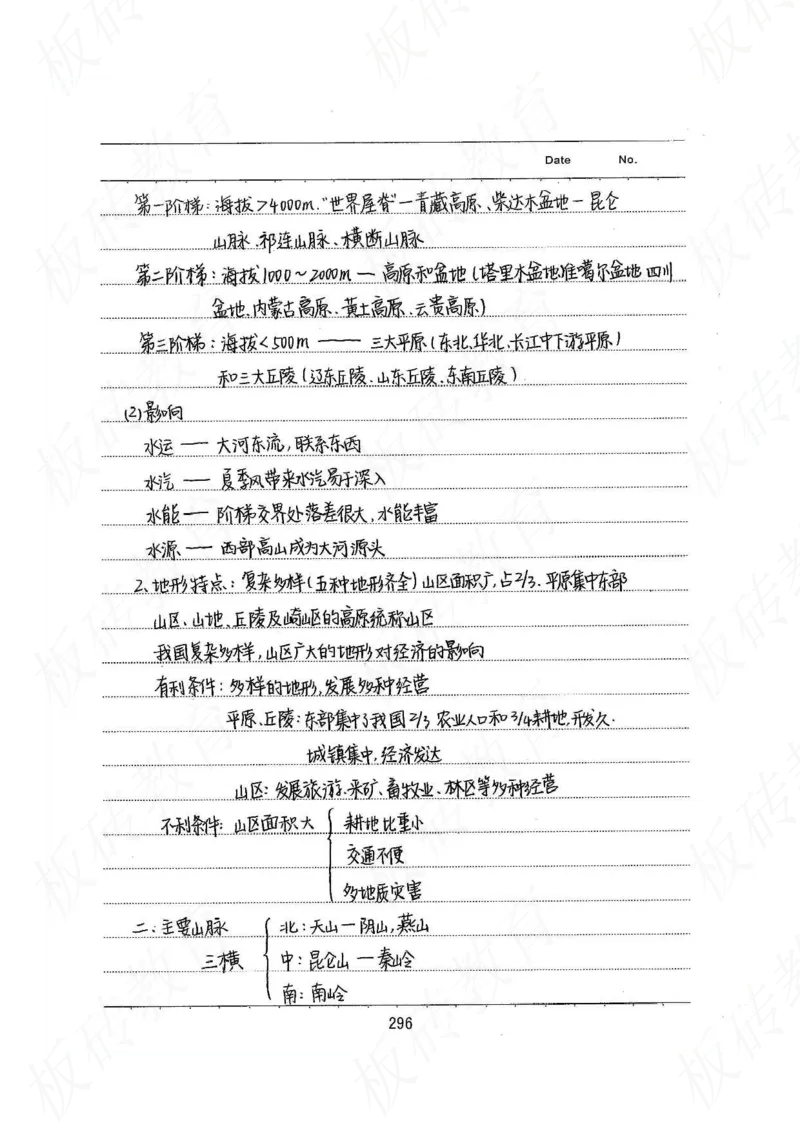 Date No.
第一阶梯：海拔>4000m."世界屋脊"—青藏高原、柴达木盆地—昆仑
山脉、祁连山脉、横断山脉
第二阶梯：海拔1000~2000m — 高原和盆地(塔里木盆地准噶尔盆地四川
盆地、内蒙古高原、黄土高原、云贵高原)
第三阶梯：海拔<500m —— 三大平原(东北、华北、长江中下游平原)
和三大丘陵(辽东丘陵、山东丘陵、东南丘陵)
(2)影响
水运 — 大河东流,联系东西
水汽 — 夏季风带来水汽易于深入
水能 — 阶梯交界处落差很大,水能丰富
水源 — 西部高山成为大河源头
2、地形特点：复杂多样(五种地形齐全)山区面积广,占2/3.平原集中东部
山区、山地、丘陵及崎岖的高原统称山区
我国复杂多样,山区广大的地形对经济的影响
有利条件：多样的地形,发展多种经营
平原、丘陵：东部集中了我国2/3农业人口和3/4耕地,开发久.
城镇集中,经济发达
山区：发展旅游、采矿、畜牧业、林区等多种经营
不利条件：山区面积大 { 耕地比重小
交通不便
多地质灾害
二、主要山脉 { 北：天山—阴山,燕山
三横 中：昆仑山—秦岭
南：南岭
296
板砖教育